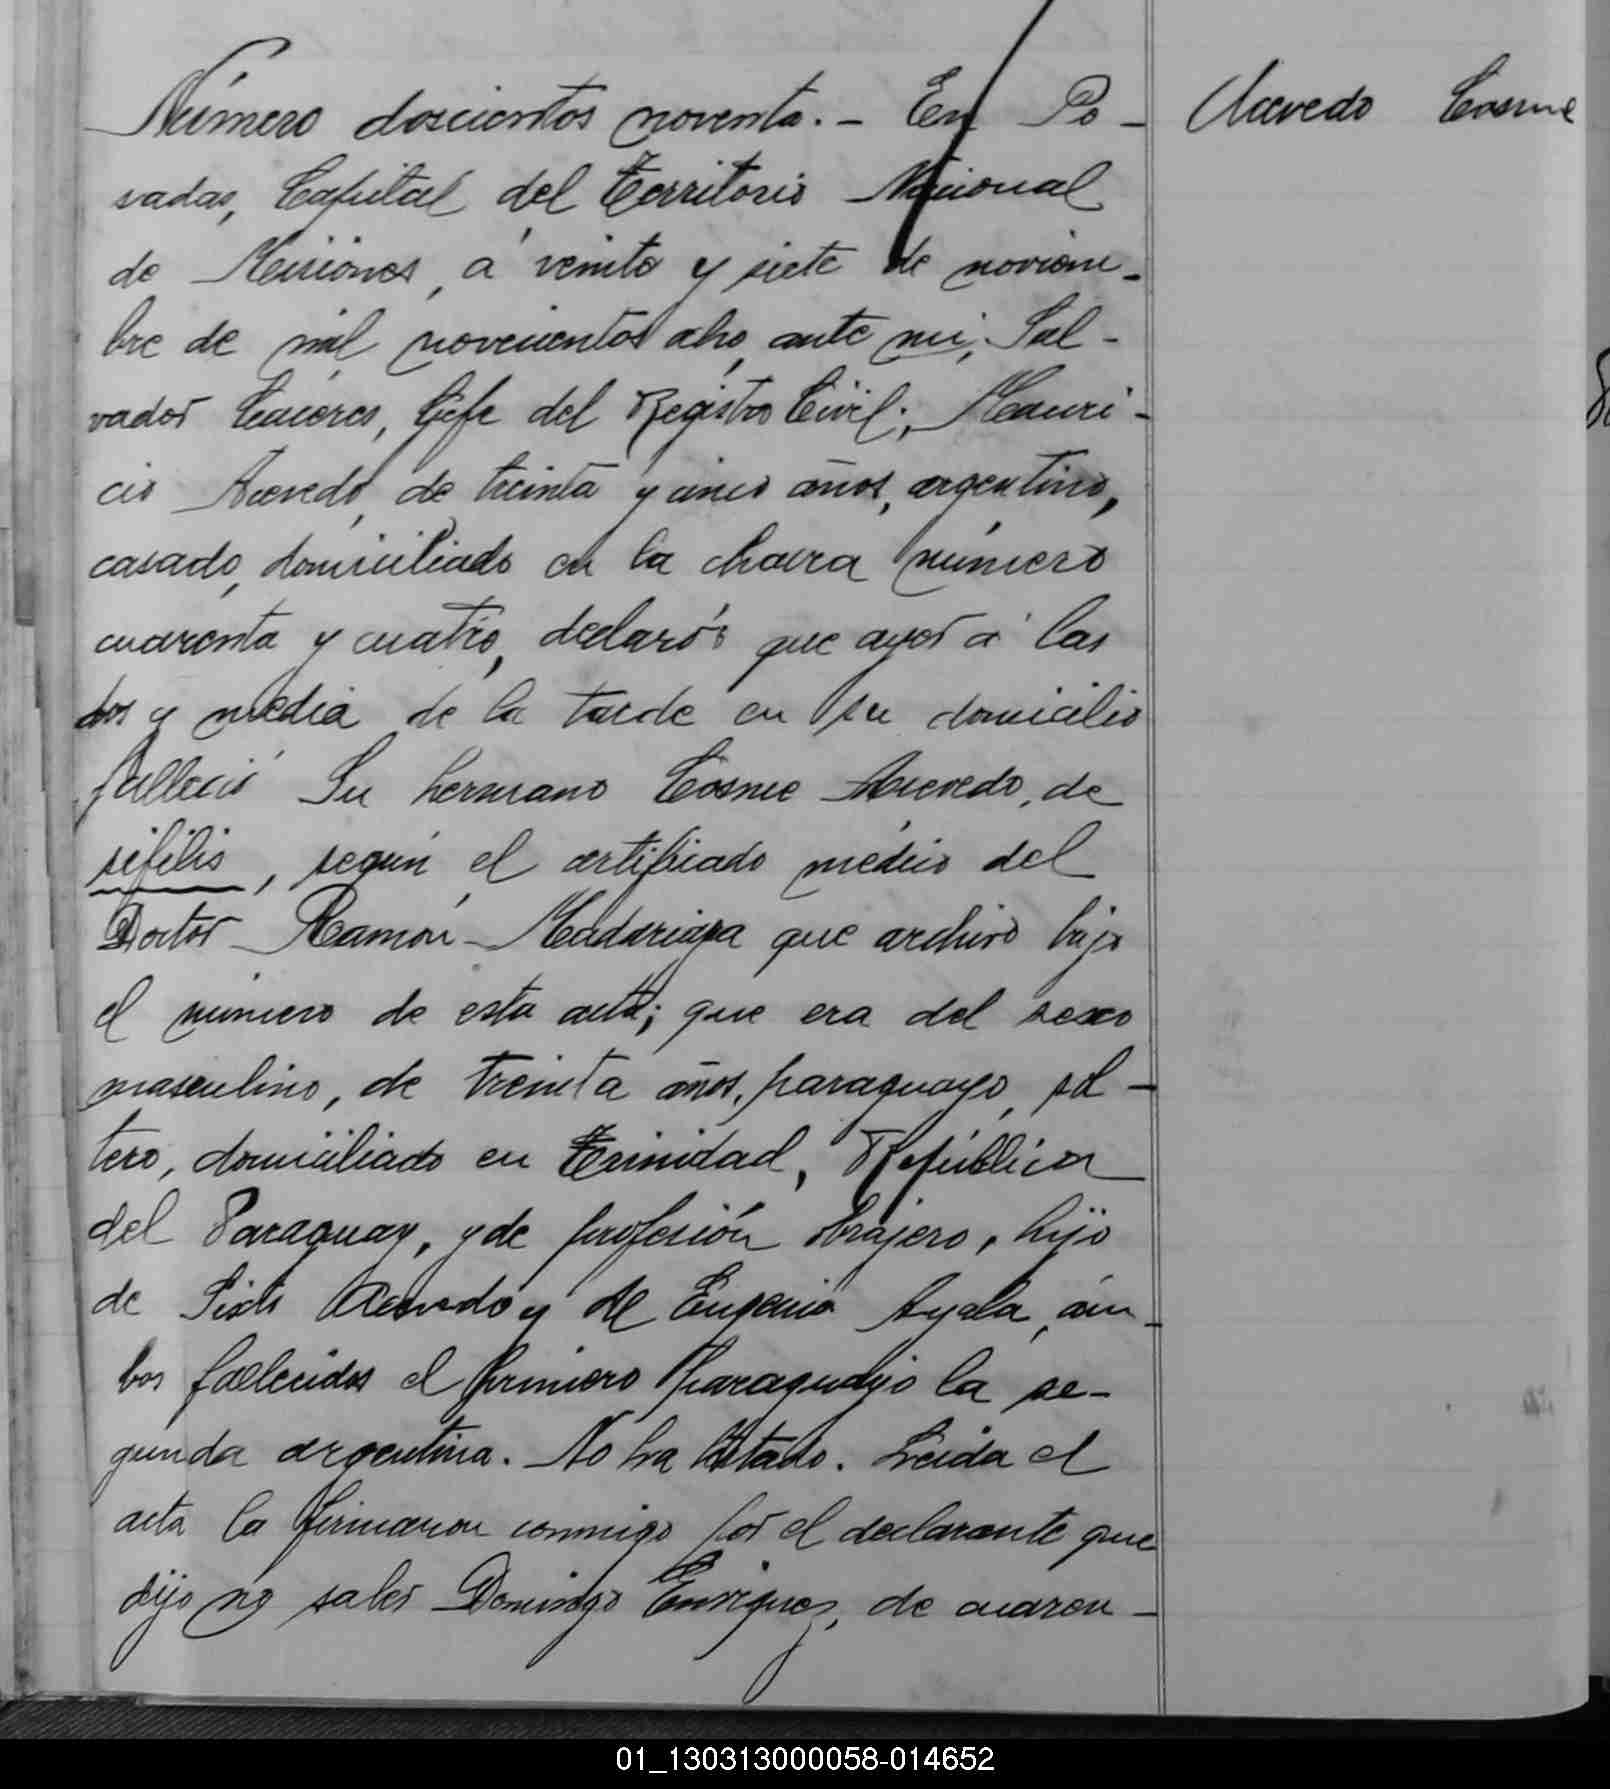 Número doscientos noventa. - En Po-
sadas, Capital del Territorio Nacional
de Misiones, á veinte y siete de noviem-
bre de mil novecientos ocho, ante mi, Sal-
vador Cáceres, Gefe del Registro Civil; Mauri-
cio Acevedo, de treinta y cinco años, argentino,
casado, domiciliado en la chacra número
cuarenta y cuatro, declaró: que ayer á las
dos y media de la tarde en su domicilio
falleció Su hermano Cosme Acevedo, de
sífilis, según el certificado médico del
Doctor Ramón Madariaga que archivo bajo
el número de esta acta; que era del sexo
masculino, de treinta años, paraguayo, sol-
tero, domiciliado en Trinidad, República
del Paraguay, y de profesión obrajero, hijo
de Sixto Acevedo y de Eugenia Ayala, ám-
bos fallecidos el primero paraguayo la se-
gunda argentina. No ha testado. Leida el
acta la firmaron conmigo por el declarante que
dijo no saber Domingo Enriquez, de cuaren-
Acevedo Cosme
01_130313000058-014652